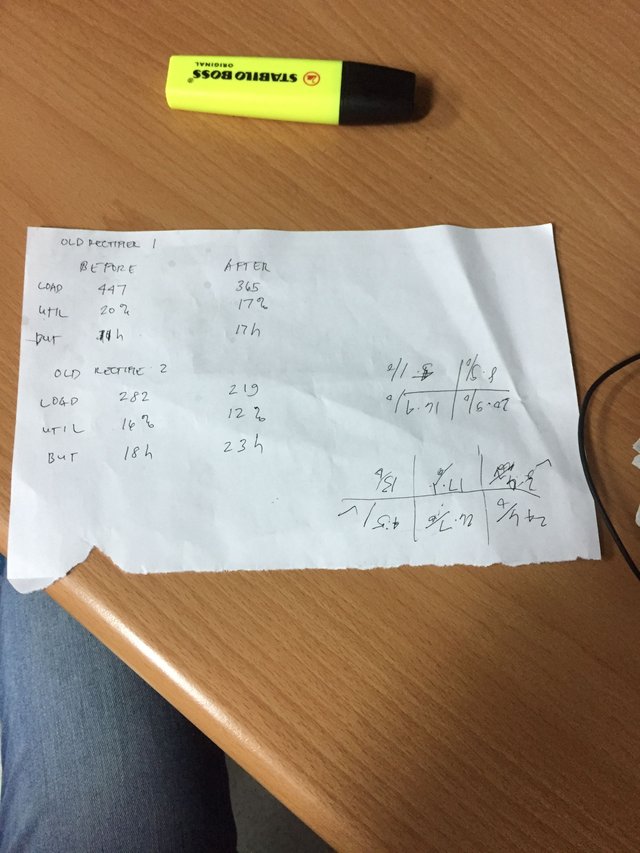 STABILO BOSS®
ORIGINAL
OLD RECTIFIER 1
BEFORE AFTER
LOAD 447 365
UTIL 20% 17%
BUT 11h 17h
OLD RECTIFIE 2
LOAD 282 219
UTIL 16% 12%
BUT 18h 23h
20.9% 14.9%
8.5%
24.4% 22.7% 4.5%
17.1 13%